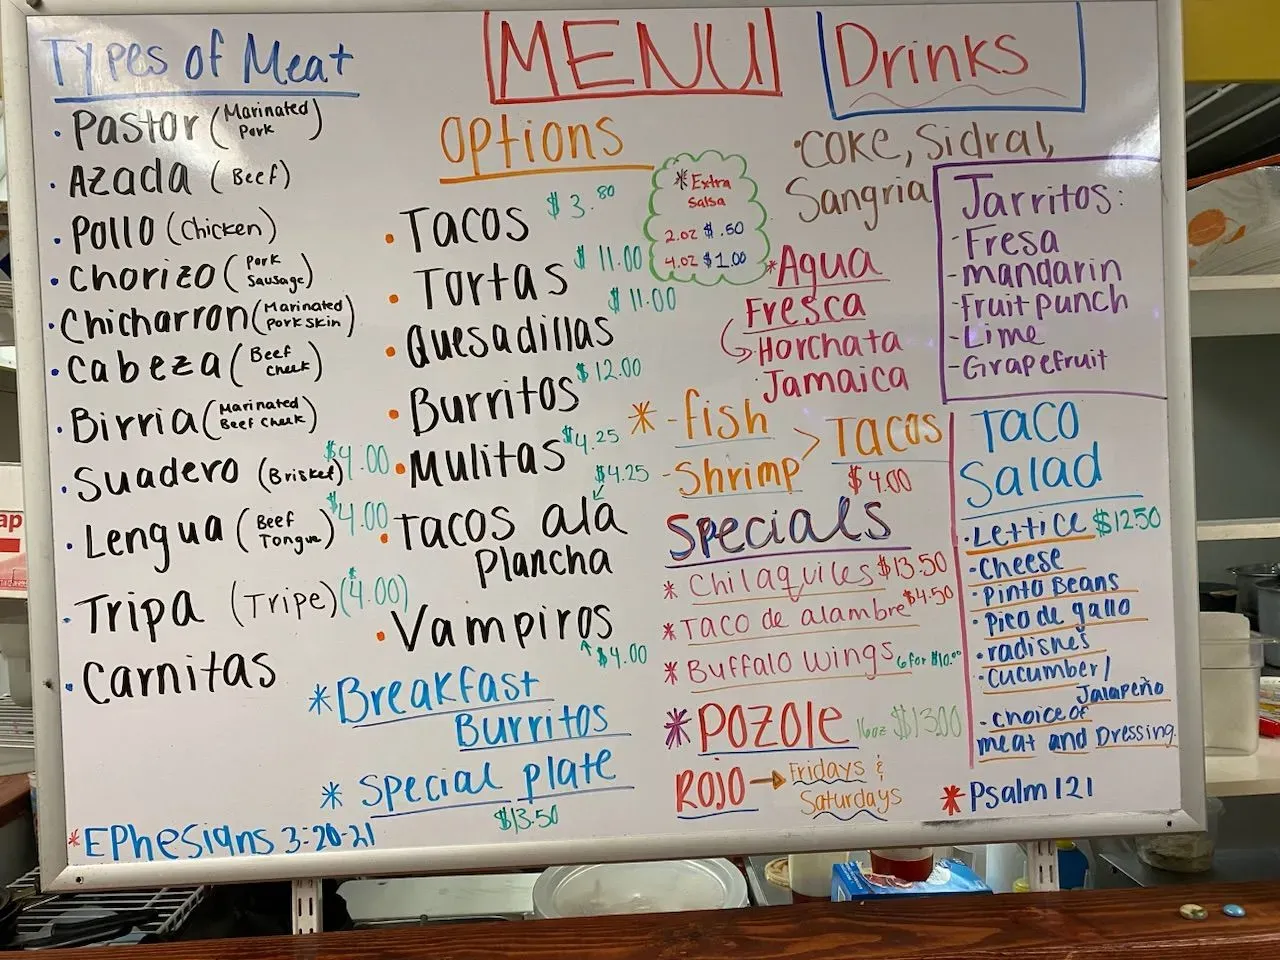 MENU
Types of Meat
• Pastor (Marinated Pork)
• Azada (Beef)
• Pollo (Chicken)
• Chorizo (Pork Sausage)
• Chicharron (Marinated Pork Skin)
• Cabeza (Beef Cheek)
• Birria (Marinated Beef Cheek)
• Suadero (Brisket) $4.00
• Lengua (Beef Tongue) $4.00
• Tripa (Tripe) ($4.00)
• Carnitas
Options
• Tacos $3.80
• Tortas $11.00
• Quesadillas $11.00
• Burritos $12.00
• Mulitas $4.25
• Tacos ala $4.25
Plancha
• Vampiros
$4.00
* Breakfast
Burritos
* Special plate
$13.50
* Ephesians 3:20-21
* Extra
Salsa
2.oz $.50
4.oz $1.00
Drinks
• Coke, Sidral,
Sangria
Jarritos:
- Fresa
- mandarin
- Fruit punch
- Lime
- Grapefruit
* Agua
Fresca
Horchata
Jamaica
* - fish
- Shrimp > Tacos
$4.00
Specials
* Chilaquiles $13.50
* Taco de alambre $4.50
* Buffalo wings 6 for $10.00
* Pozole 16oz $13.00
Rojo → Fridays &
Saturdays
Taco
Salad
• Lettice $12.50
• Cheese
• Pinto Beans
• pico de gallo
• radishes
• cucumber/
Jalapeño
- choice of
meat and Dressing.
* Psalm 121